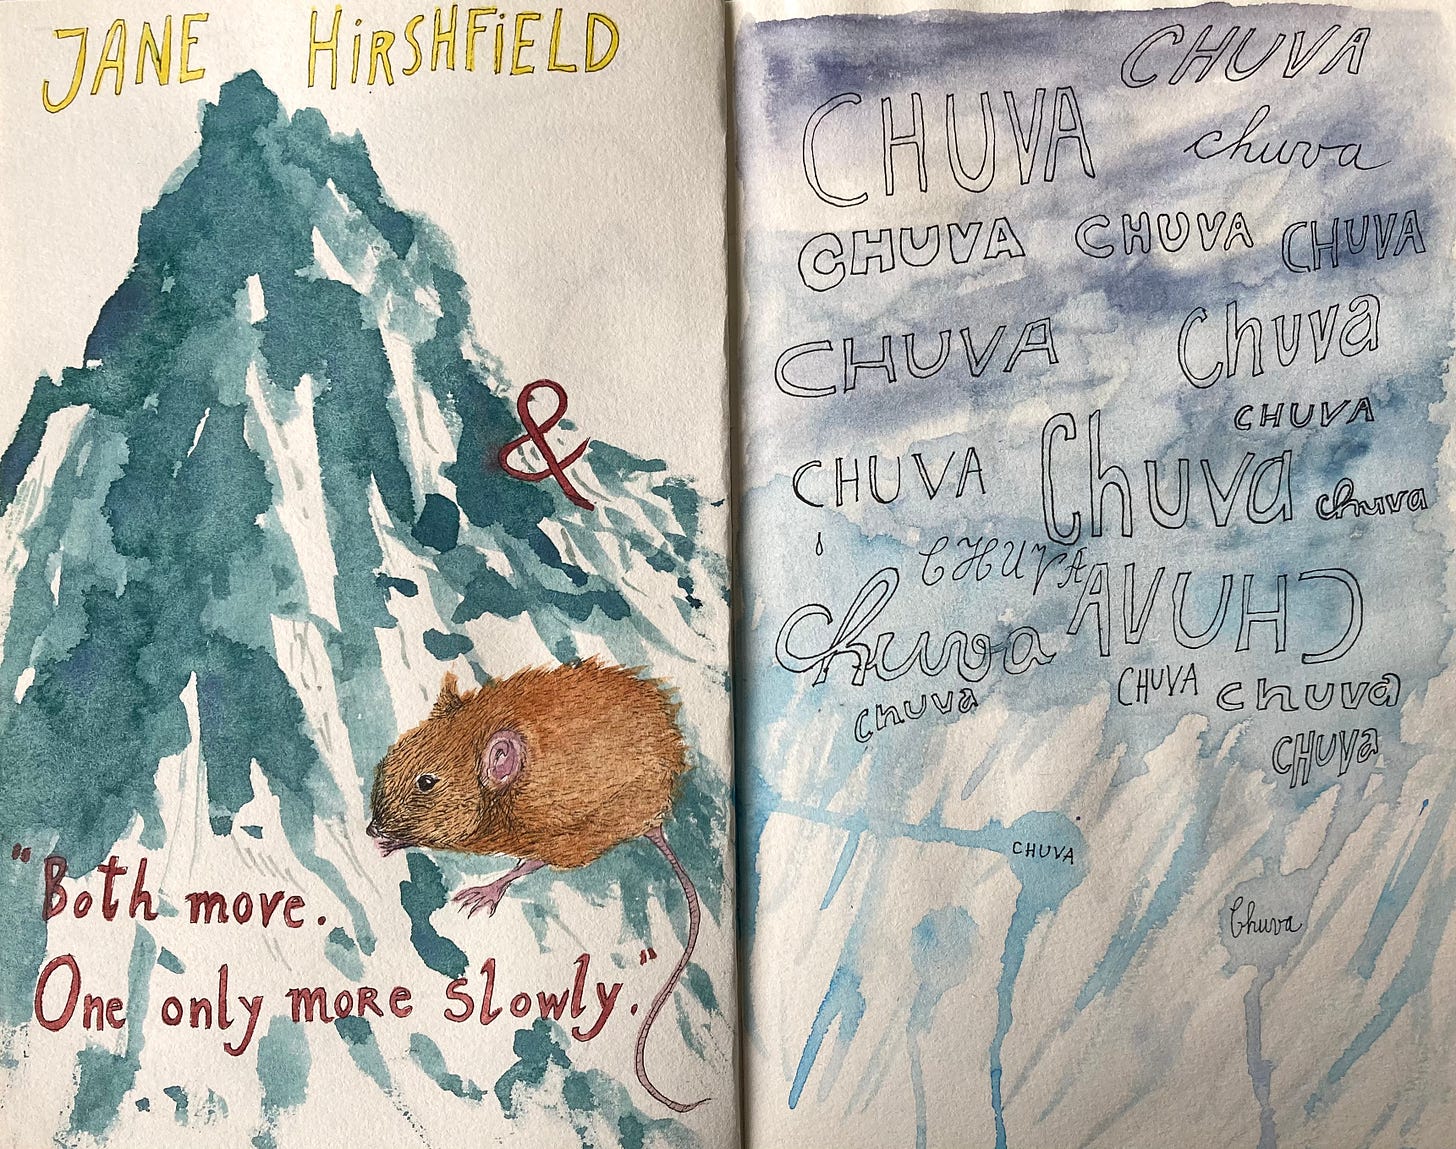 JANE HIRSHFIELD
&
"Both move.
One only more slowly."
CHUVA
CHUVA
chuva
CHUVA CHUVA CHUVA
CHUVA Chuva
CHUVA
CHUVA Chuva chuva
CHUVA
chuva AVUHC
chuva CHUVA chuva
CHUVA
CHUVA
Chuva